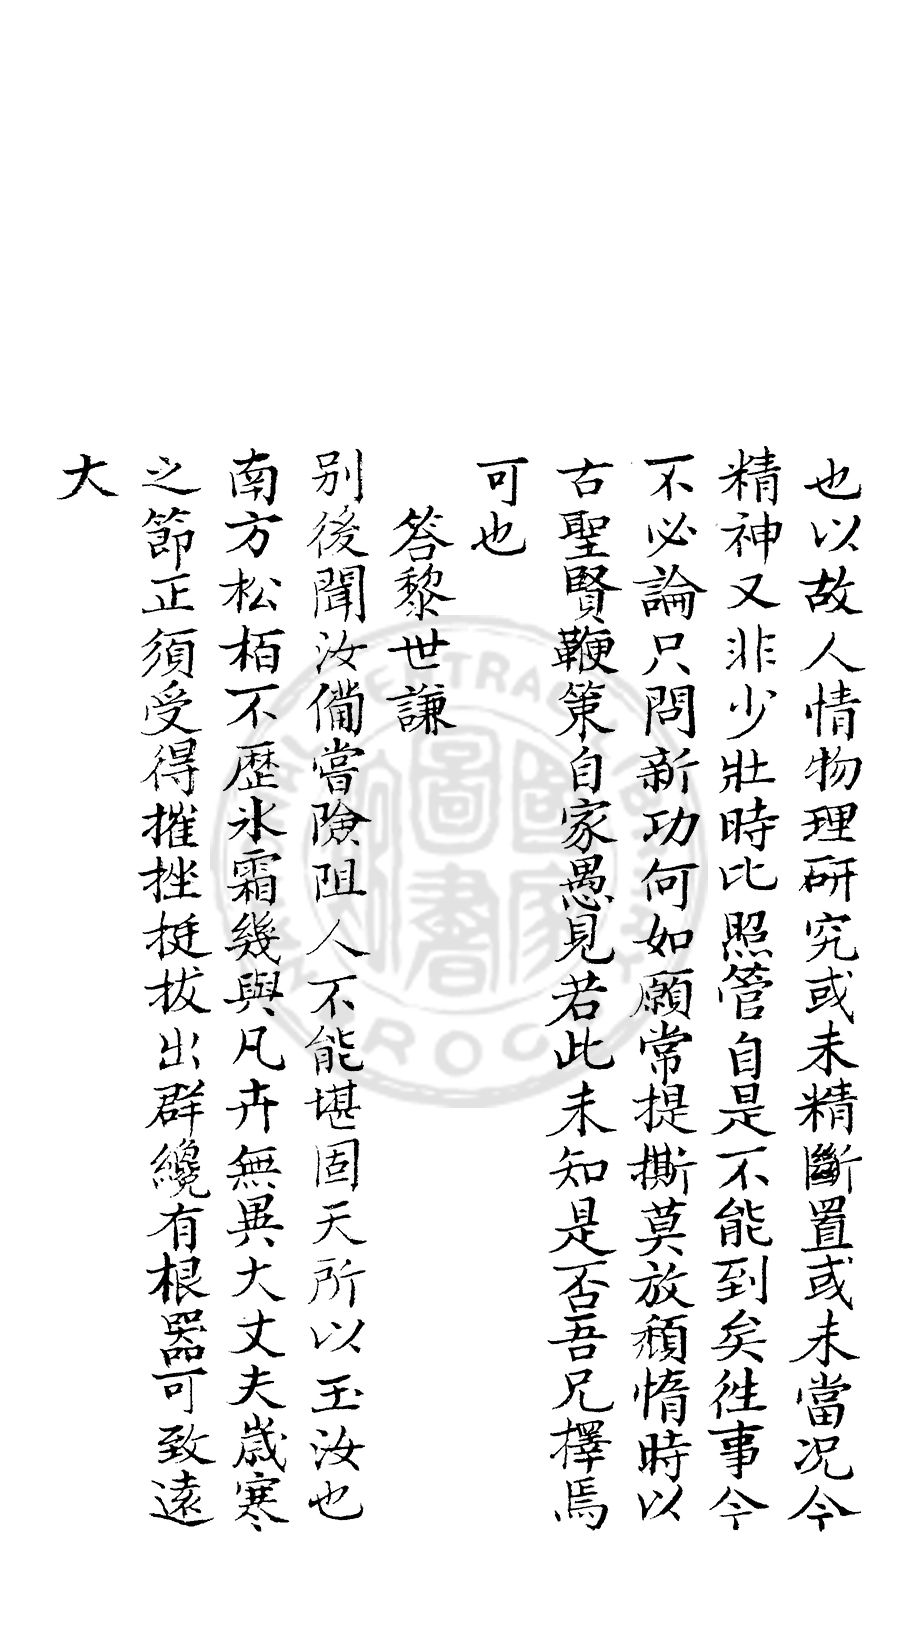 也以故人情物理研究或未精斷置或未當况今
精神又非少壯時比照管自是不能到矣徃事今
不必論只問新功何如願常提撕莫放頹惰時以
古聖賢鞭策自家愚見若此未知是否吾兄擇焉
可也
答黎世謙
别後聞汝備嘗險阻人不能堪固天所以玉汝也
南方松栢不歷氷霜幾與凡卉無異大丈夫歲寒
之節正須受得摧挫挺拔出群纔有根器可致遠
大